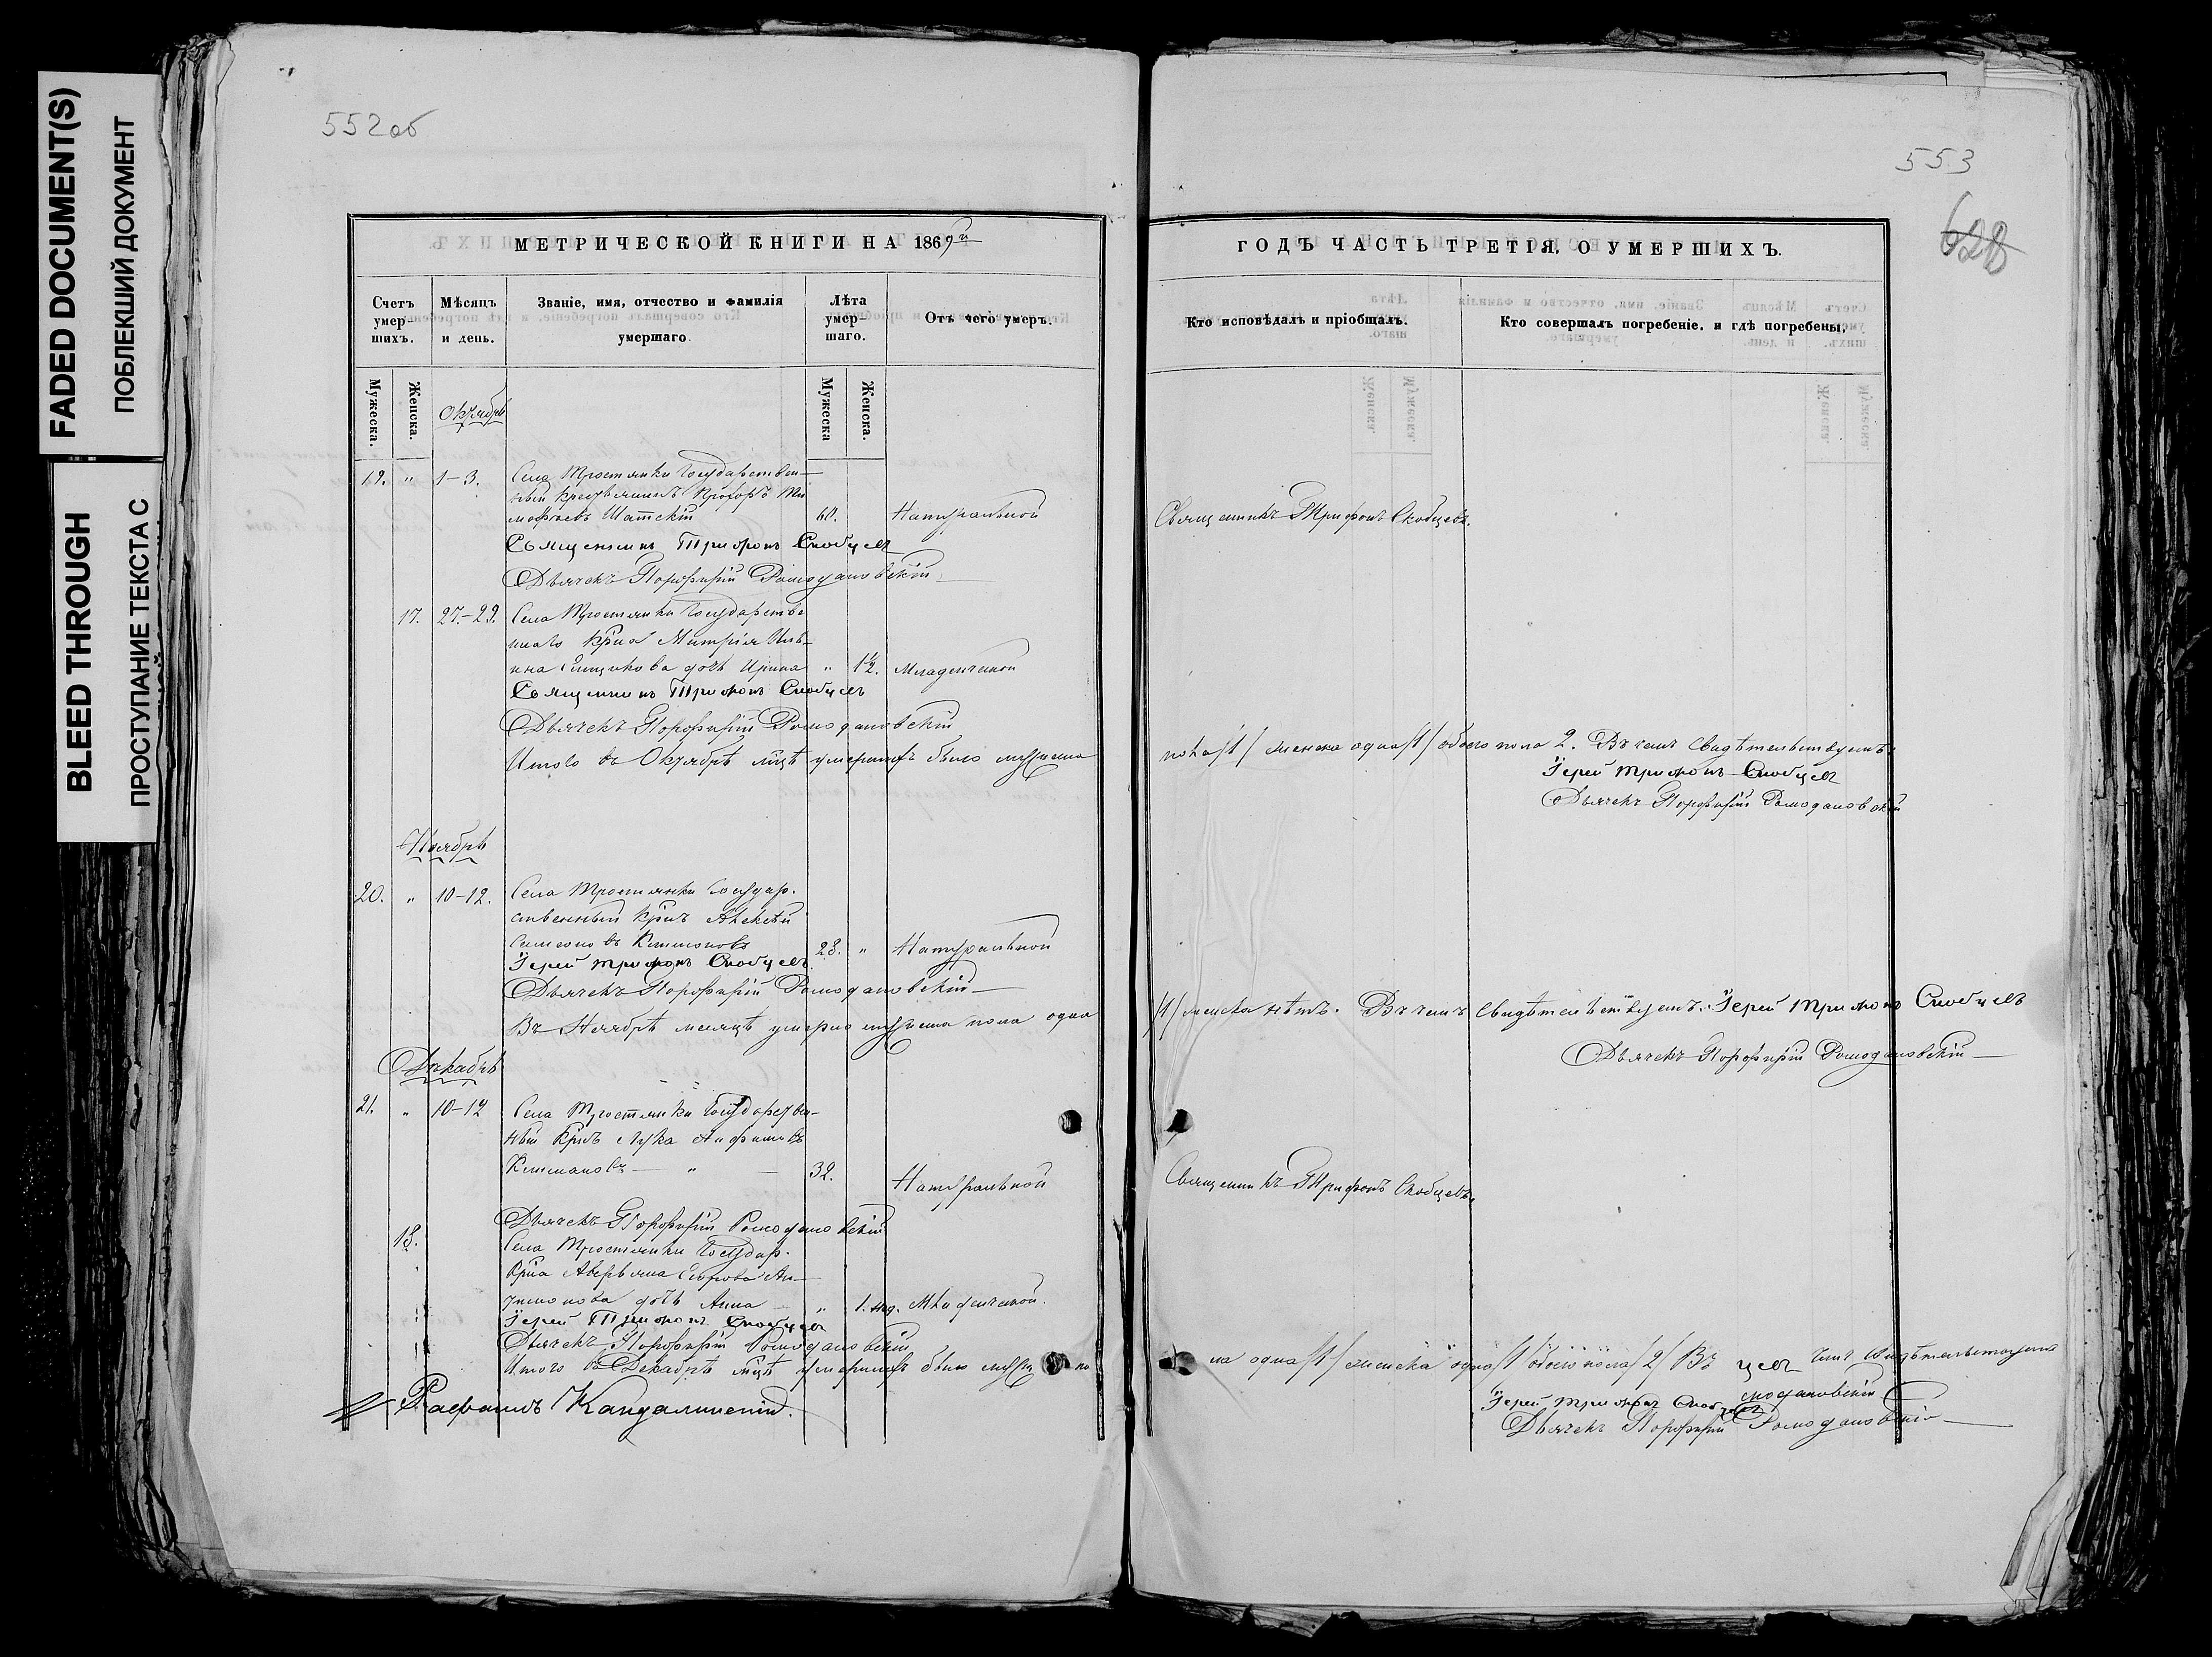 FADED DOCUMENT(S)
ПОБЛЕКШИЙ ДОКУМЕНТ
BLEED THROUGH
ПРОСТУПАНИЕ ТЕКСТА С
552об
МЕТРИЧЕСКОЙ КНИГИ НА 1869й
Счетъ умер-шихъ.
Мѣсяцъ и день.
Званіе, имя, отчество и фамилія умершаго.
Лѣта умер-шаго.
Отъ чего умеръ.
Мужеска.
Женска.
Мужеска
Женска.
Октябрь
19. " 1-3. Села Тростянки Государствен-
ный крестьянинъ Прохоръ Ти
мофѣевъ Шатскій 60. Натуральной
Священникъ Трифонъ Скобцевъ
Дьячекъ Порфирій Ромодановскій
17. 27-29. Села Тростянки Государстве
ннаго крна Митрія Иль-
ина дочь Ирина " 1½. Младенческой
Священникъ Трифонъ Скобцевъ
Дьячекъ Порфирій Ромодановскій
Итого въ Октябрѣ мцѣ умершихъ было мужеска
Ноябрь
20. " 10-12. Села Тростянки Государ.
ственный крнъ Алексѣй
Симеоновъ 28. " Натуральной
Іерей Трифонъ Скобцевъ
Дьячекъ Порфирій Ромодановскій
Въ Ноябрѣ месяцѣ умерло мужеска пола одна
Декабрь
21. " 10-12 Села Тростянки Государствен-
ный крнъ Лука
" 32. Натуральной
Дьячекъ Порфирій Ромодановскій
18. Села Тростянки Государ.
крна Аверьяна Егорова Ан-
дочь Анна " 1. нед. Младенческой.
Іерей Трифонъ Скобцевъ
Дьячекъ Порфирій Ромодановскій
Итого въ Декабрѣ мцѣ умершихъ было мужеска по
553
628
ГОДЪ ЧАСТЬ ТРЕТЯ, О УМЕРШИХЪ.
Кто исповѣдалъ и пріобщалъ.
Кто совершалъ погребеніе, и гдѣ погребены.
Священникъ Трифонъ Скобцевъ.
/1/ женска одна /1/ обоего пола 2. Въ чемъ свидѣтельствуемъ:
Іерей Трифонъ Скобцевъ
Дьячекъ Порфирій Ромодановскій
/1/ женска нѣтъ. Въ чемъ свидѣтельствуемъ: Іерей Трифонъ Скобцевъ
Дьячекъ Порфирій Ромодановскій
Священникъ Трифонъ Скобцевъ.
ла одна /1/ женска одна /1/ обоего пола /2/ Въ чемъ свидѣтельствуемъ
Іерей Трифонъ Скобцевъ
Дьячекъ Порфирій Ромодановскій